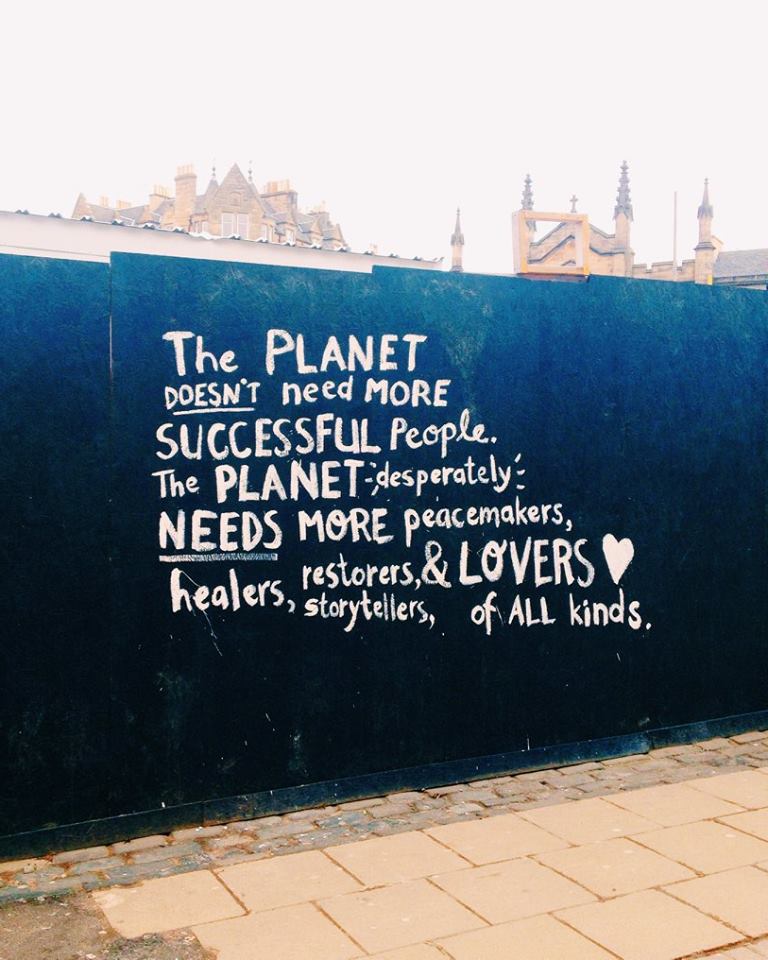 The PLANET
DOESN'T need MORE
SUCCESSFUL People.
The PLANET desperately
NEEDS MORE peacemakers,
healers, restorers, & LOVERS ♥
storytellers, of ALL kinds.